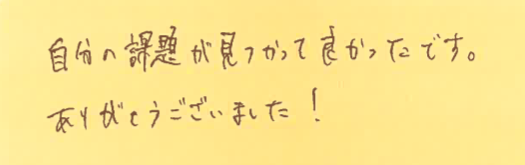 自分の課題が見つかって良かったです。
ありがとうございました！